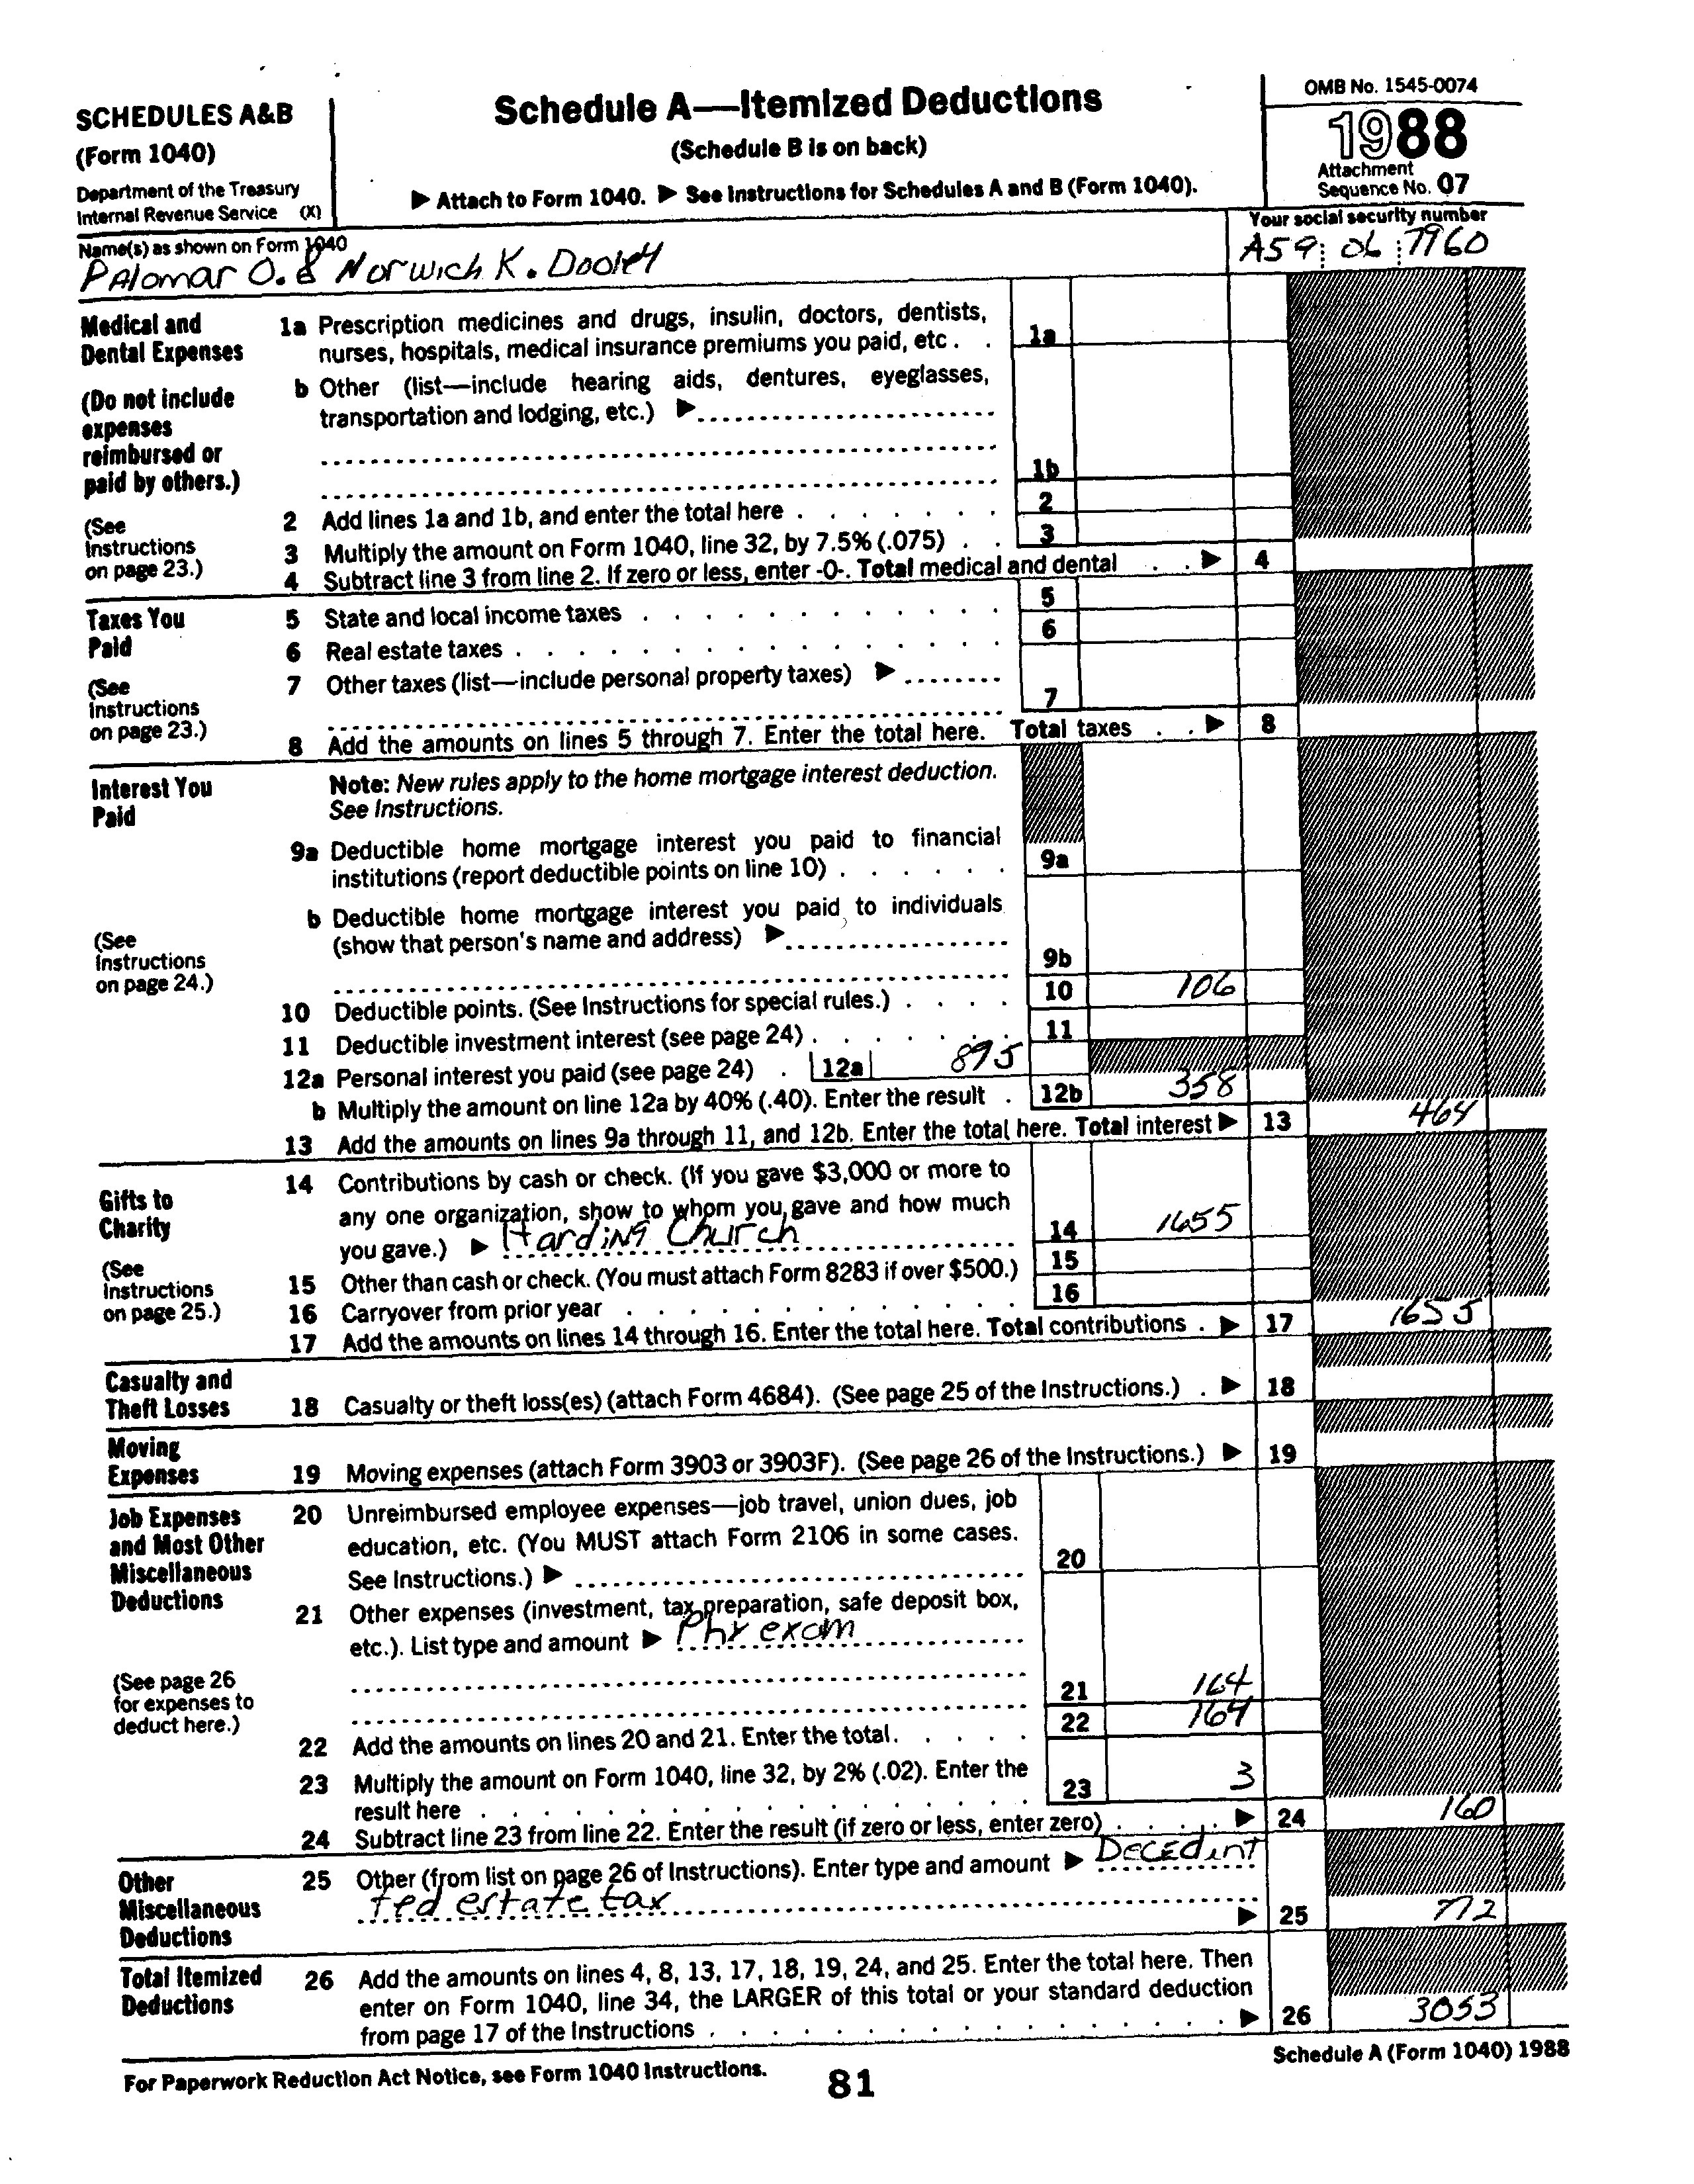 SCHEDULES A&B
(Form 1040)
Department of the Treasury
Internal Revenue Service (X)
Schedule A—Itemized Deductions
(Schedule B is on back)
▶ Attach to Form 1040. ▶ See Instructions for Schedules A and B (Form 1040).
OMB No. 1545-0074
1988
Attachment
Sequence No. 07
Name(s) as shown on Form 1040
Palomar O. & Norwich K. Dooley
Your social security number
A59 06 7960
Medical and
Dental Expenses
(Do not include
expenses
reimbursed or
paid by others.)
(See
Instructions
on page 23.)
1a Prescription medicines and drugs, insulin, doctors, dentists,
nurses, hospitals, medical insurance premiums you paid, etc . . 1a
b Other (list—include hearing aids, dentures, eyeglasses,
transportation and lodging, etc.) ▶
1b
2 Add lines 1a and 1b, and enter the total here . . . . . . . 2
3 Multiply the amount on Form 1040, line 32, by 7.5% (.075) . . 3
4 Subtract line 3 from line 2. If zero or less, enter -0-. Total medical and dental . . ▶ 4
Taxes You
Paid
(See
Instructions
on page 23.)
5 State and local income taxes . . . . . . . . . . . . 5
6 Real estate taxes . . . . . . . . . . . . . . . . 6
7 Other taxes (list—include personal property taxes) ▶
7
8 Add the amounts on lines 5 through 7. Enter the total here. Total taxes . . ▶ 8
Interest You
Paid
(See
Instructions
on page 24.)
Note: New rules apply to the home mortgage interest deduction.
See Instructions.
9a Deductible home mortgage interest you paid to financial
institutions (report deductible points on line 10) . . . . . . 9a
b Deductible home mortgage interest you paid to individuals
(show that person's name and address) ▶
9b
10 Deductible points. (See Instructions for special rules.) . . . . 10 106
11 Deductible investment interest (see page 24) . . . . . . . 11
12a Personal interest you paid (see page 24) . 12a 895
b Multiply the amount on line 12a by 40% (.40). Enter the result . 12b 358
13 Add the amounts on lines 9a through 11, and 12b. Enter the total here. Total interest ▶ 13 464
Gifts to
Charity
(See
Instructions
on page 25.)
14 Contributions by cash or check. (If you gave $3,000 or more to
any one organization, show to whom you gave and how much
you gave.) ▶ Harding Church 14 1655
15 Other than cash or check. (You must attach Form 8283 if over $500.) 15
16 Carryover from prior year . . . . . . . . . . . . . 16
17 Add the amounts on lines 14 through 16. Enter the total here. Total contributions . ▶ 17 1655
Casualty and
Theft Losses
18 Casualty or theft loss(es) (attach Form 4684). (See page 25 of the Instructions.) . ▶ 18
Moving
Expenses
19 Moving expenses (attach Form 3903 or 3903F). (See page 26 of the Instructions.) ▶ 19
Job Expenses
and Most Other
Miscellaneous
Deductions
(See page 26
for expenses to
deduct here.)
20 Unreimbursed employee expenses—job travel, union dues, job
education, etc. (You MUST attach Form 2106 in some cases.
See Instructions.) ▶ 20
21 Other expenses (investment, tax preparation, safe deposit box,
etc.). List type and amount ▶ Phy exam
21 164
22 Add the amounts on lines 20 and 21. Enter the total. . . . . 22 164
23 Multiply the amount on Form 1040, line 32, by 2% (.02). Enter the
result here . . . . . . . . . . . . . . . . . 23 3
24 Subtract line 23 from line 22. Enter the result (if zero or less, enter zero) . . . . . ▶ 24 160
Other
Miscellaneous
Deductions
25 Other (from list on page 26 of Instructions). Enter type and amount ▶ Decedent
fed estate tax
▶ 25 772
Total Itemized
Deductions
26 Add the amounts on lines 4, 8, 13, 17, 18, 19, 24, and 25. Enter the total here. Then
enter on Form 1040, line 34, the LARGER of this total or your standard deduction
from page 17 of the Instructions . . . . . . . . . . . . . . . . ▶ 26 3053
For Paperwork Reduction Act Notice, see Form 1040 Instructions.
81
Schedule A (Form 1040) 1988